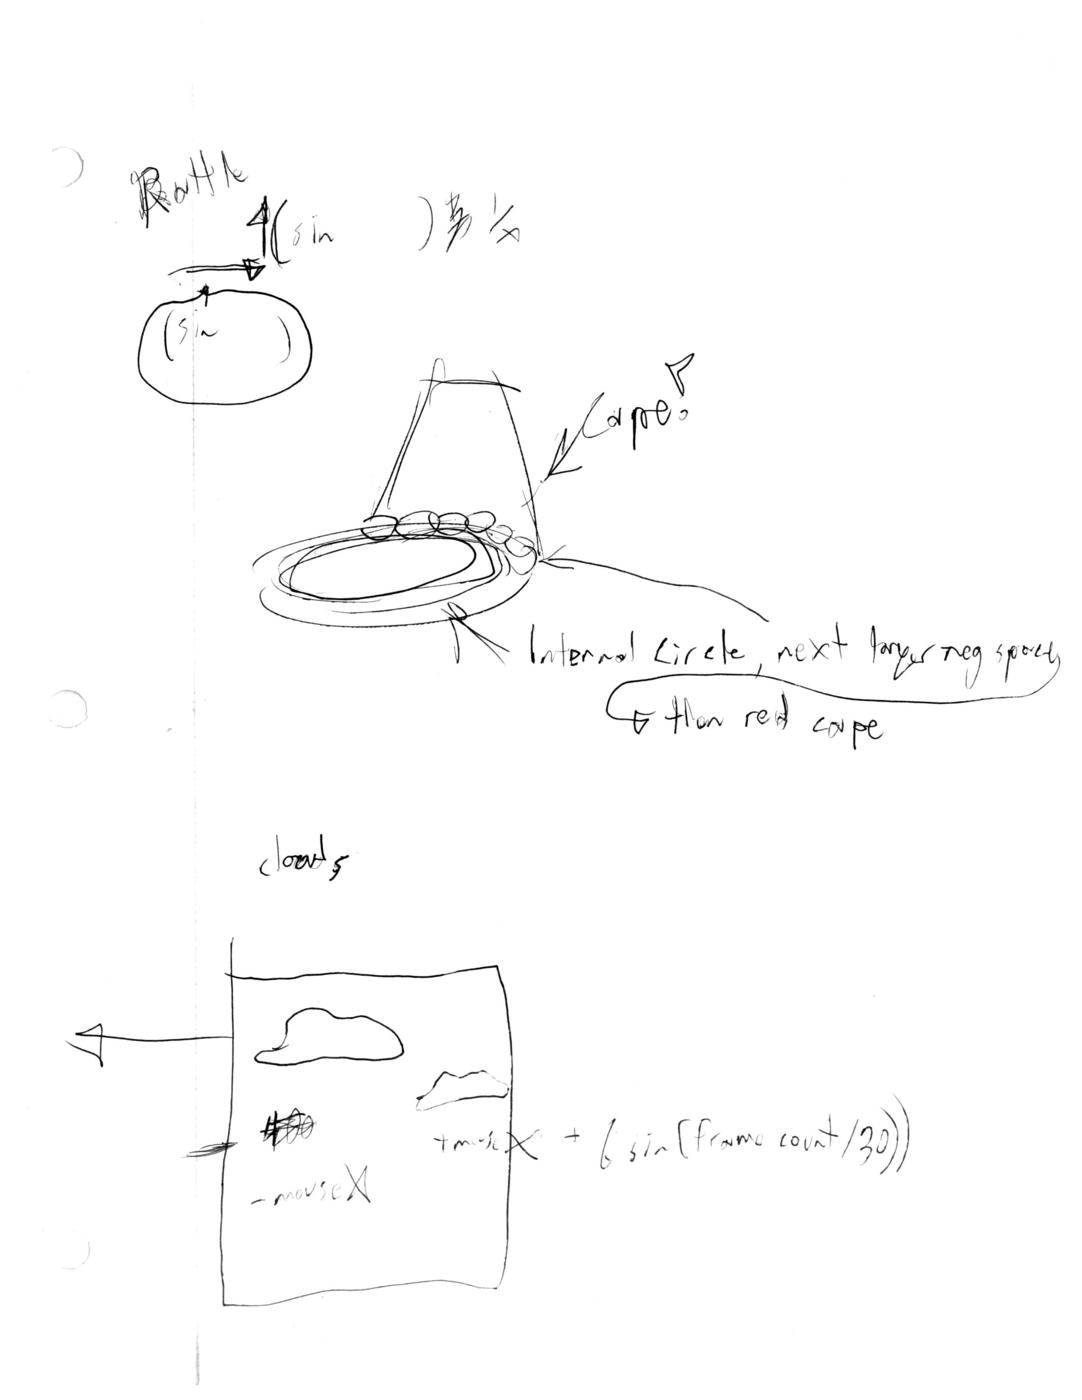 Rattle
(sin ) 1/x
(sin )
Carpe?
Internal circle, next larger neg space,
than red carpe
clouds
+mouseX + 6 sin(frame count/30))
-mouseX